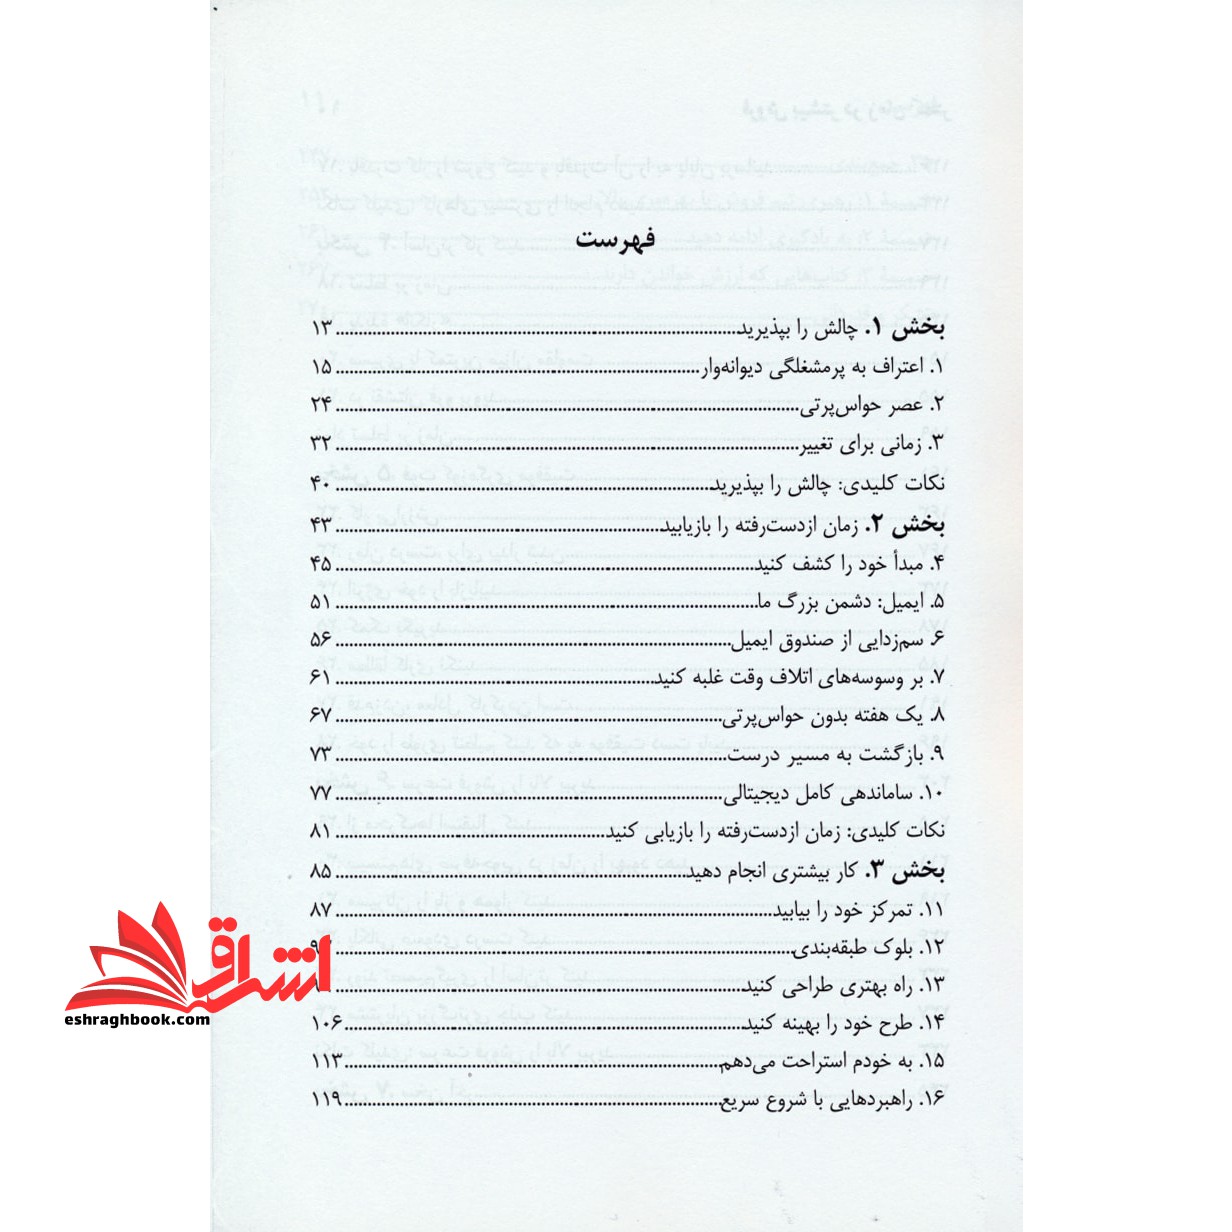 فهرست
بخش ۱. چالش را بپذیرید ۱۳
۱. اعتراف به پرمشغلگی دیوانه‌وار ۱۵
۲. عصر حواس‌پرتی ۲۴
۳. زمانی برای تغییر ۳۲
نکات کلیدی: چالش را بپذیرید ۴۰
بخش ۲. زمان ازدست‌رفته را بازیابید ۴۳
۴. مبدأ خود را کشف کنید ۴۵
۵. ایمیل: دشمن بزرگ ما ۵۱
۶. سم‌زدایی از صندوق ایمیل ۵۶
۷. بر وسوسه‌های اتلاف وقت غلبه کنید ۶۱
۸. یک هفته بدون حواس‌پرتی ۶۷
۹. بازگشت به مسیر درست ۷۳
۱۰. ساماندهی کامل دیجیتالی ۷۷
نکات کلیدی: زمان ازدست‌رفته را بازیابی کنید ۸۱
بخش ۳. کار بیشتری انجام دهید ۸۵
۱۱. تمرکز خود را بیابید ۸۷
۱۲. بلوک طبقه‌بندی
۱۳. راه بهتری طراحی کنید
۱۴. طرح خود را بهینه کنید ۱۰۶
۱۵. به خودم استراحت می‌دهم ۱۱۳
۱۶. راهبردهایی با شروع سریع ۱۱۹
اشراق
eshraghbook.com